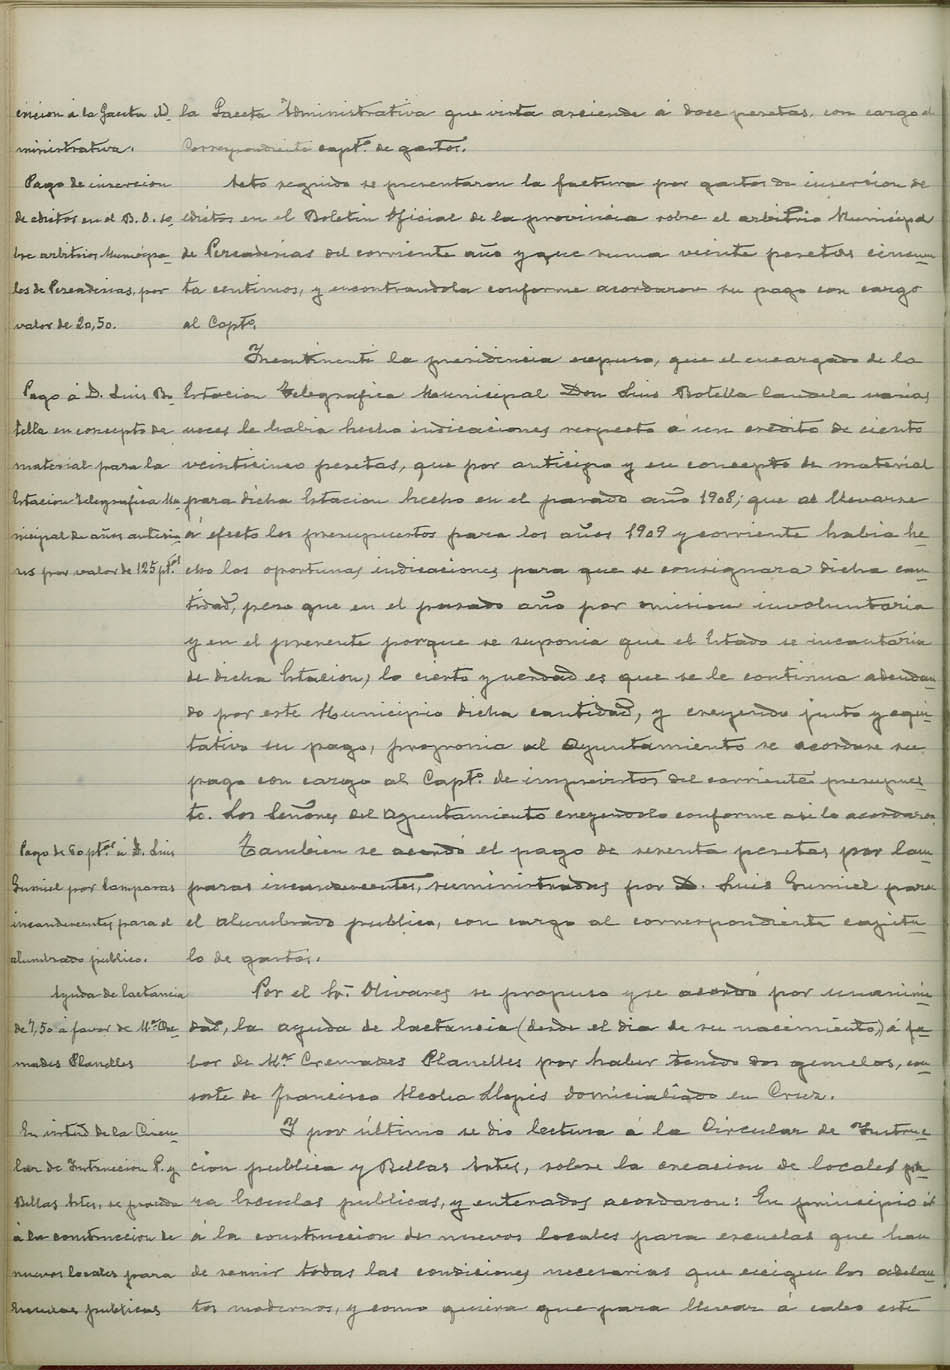 la Gaceta Administrativa que vista asciende á doce pesetas, con cargo al
correspondiente captº. de gastos.
Acto seguido se presentaron la factura por gastos de insercion de
edictos en el Boletin Oficial de la provincia sobre el arbitrio Municipal
de Pescaderias del corriente año y que suma veinte pesetas cincuen
ta centimos, y encontrandola conforme acordaron su pago con cargo
al Captº.
Incontinenti la presidencia expuso, que el encargado de la
Estacion Telegrafica Municipal Don Luis Botella Candela varias
veces le habia hecho indicaciones respecto á un credito de ciento
veinticinco pesetas, que por anticipo y en concepto de material
para dicha Estacion hecho en el pasado año 1908; que al llevarse
á efecto los presupuestos para los años 1909 y corriente habia he-
cho las oportunas indicaciones para que se consignara dicha can-
tidad, pero que en el pasado año por omision involuntaria
y en el presente porque se suponia que el Estado se incautaria
de dicha Estacion, lo cierto y verdad es que se le continua adeudan-
do por este Municipio dicha cantidad, y creyendo justo y equi-
tativo su pago, proponia al Ayuntamiento se acordase su
pago con cargo al Captº. de imprevistos del corriente presupues-
to. Los Señores del Ayuntamiento creyendolo conforme asi lo acordaron.
Tambien se acordó el pago de sesenta pesetas por lam-
paras incandescentes, suministradas por D. Luis Gumiel para
el alumbrado publico, con cargo al correspondiente capitu-
lo de gastos.
Por el Sr. Olivares se propuso y se acordó por unanimi-
dad, la ayuda de lactancia (desde el dia de su nacimiento,) á fa-
bor de Mª. Cremades Planelles por haber tenido dos gemelos, con-
sorte de Francisco Alcolea Llopis domicialiado en Cruz.
Y por último se dio lectura á la Circular de Instruc-
cion publica y Bellas Artes, sobre la creacion de locales pa-
ra Escuelas publicas, y enterados acordaron: En principio ir
á la construccion de nuevos locales para escuelas que han
de reunir todas las condiciones necesarias que exigen los adelan-
tos modernos, y como quiera que para llevar á cabo este
ercion á la Gaceta Ad
ministrativa.
Pago de insercion
de edictos en el B. O. so
bre arbitrios Municipa-
les de Pescaderias, por
valor de 20,50.
Pago á D. Luis Bo-
tella en concepto de
material para la
Estacion Telegrafica Mu-
nicipal de años anterio-
res por valor de 125 ptas
Pago de 60 ptas á D. Luis
Gumiel por lamparas
incandecentes para el
alumbrado publico.
Ayuda de lactancia
de 7,50 á favor de Mª Cre-
mades Planelles
En virtud de la Circu-
lar de Instruccion P. y
Bellas Artes, se proceda
á la construccion de
nuevos locales para
Escuelas publicas